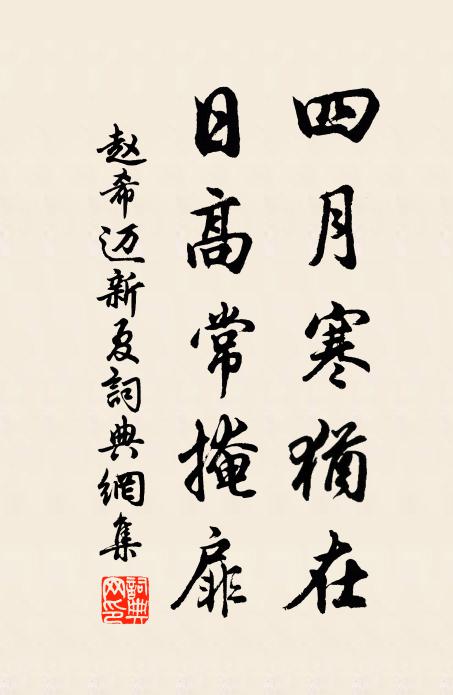 四月寒猶在
日高常掩扉
赵希迈新夏詞典網集
詞典
网印